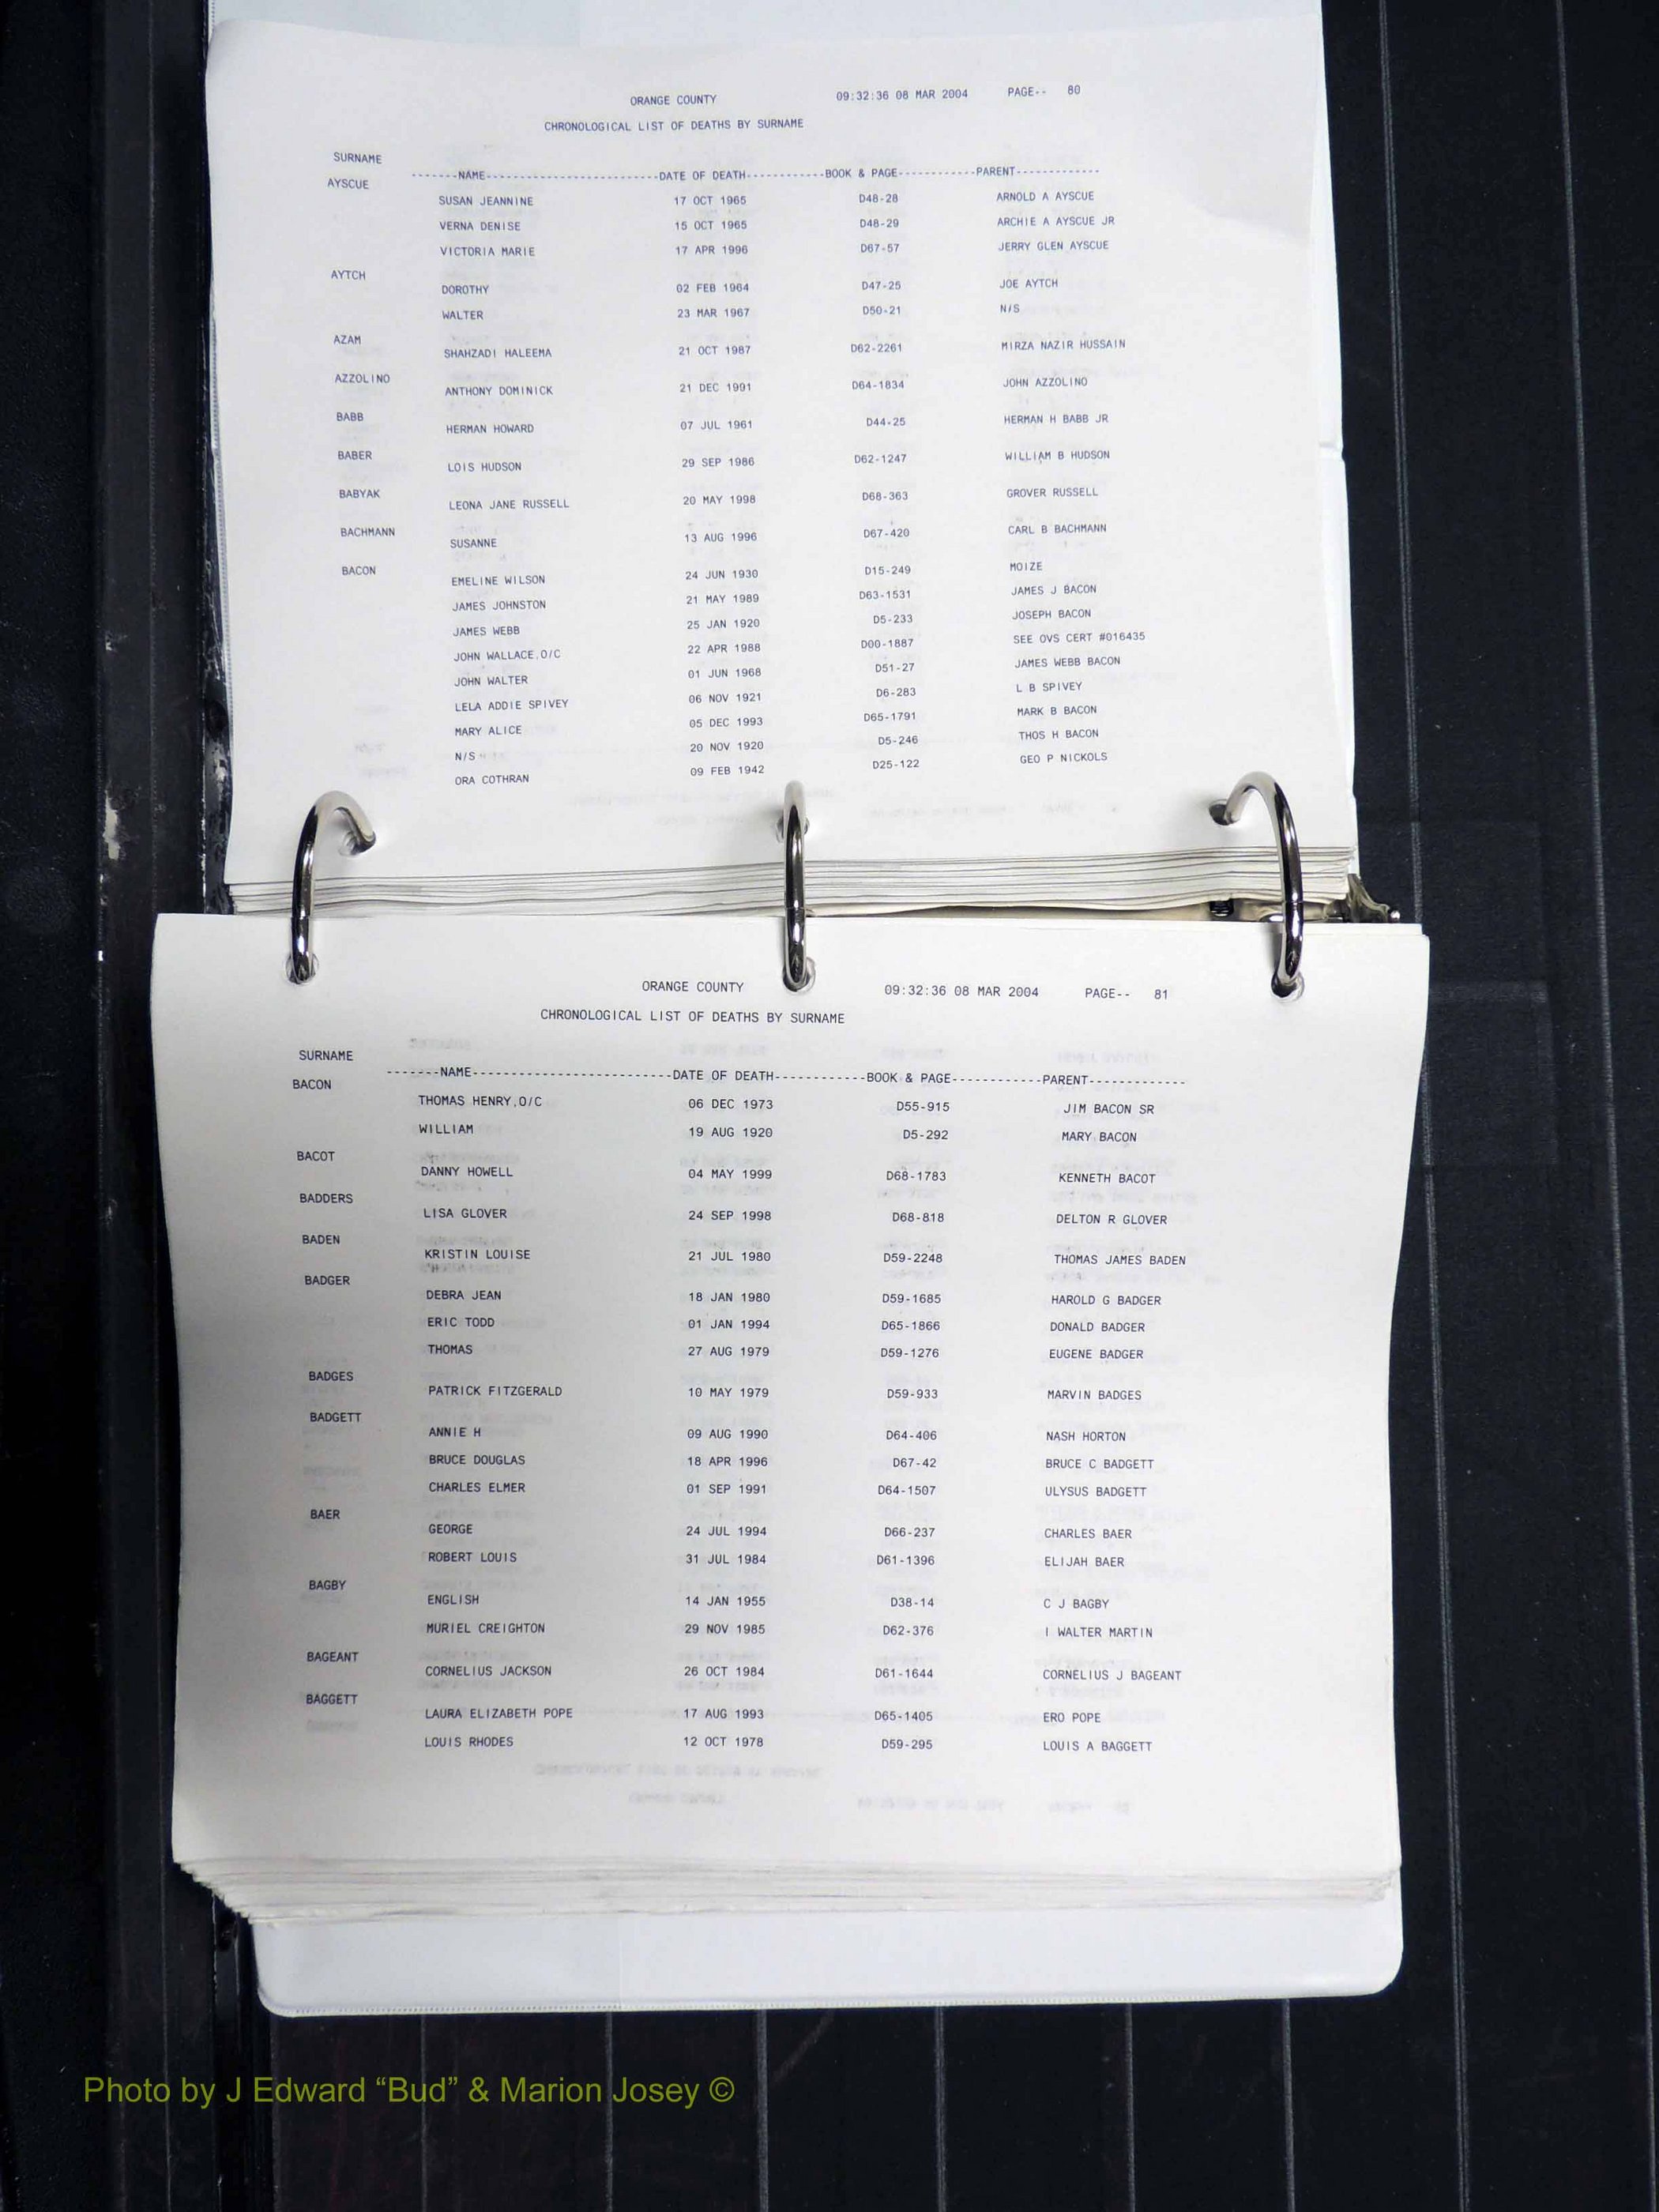 ORANGE COUNTY 09:32:36 08 MAR 2004 PAGE-- 80
CHRONOLOGICAL LIST OF DEATHS BY SURNAME
SURNAME
-------NAME--------------------------DATE OF DEATH------------BOOK & PAGE------------PARENT-------------
AYSCUE
SUSAN JEANNINE 17 OCT 1965 D48-28 ARNOLD A AYSCUE
VERNA DENISE 15 OCT 1965 D48-29 ARCHIE A AYSCUE JR
VICTORIA MARIE 17 APR 1996 D67-57 JERRY GLEN AYSCUE
AYTCH
DOROTHY 02 FEB 1964 D47-25 JOE AYTCH
WALTER 23 MAR 1967 D50-21 N/S
AZAM
SHAHZADI HALEEMA 21 OCT 1987 D62-2261 MIRZA NAZIR HUSSAIN
AZZOLINO
ANTHONY DOMINICK 21 DEC 1991 D64-1834 JOHN AZZOLINO
BABB
HERMAN HOWARD 07 JUL 1961 D44-25 HERMAN H BABB JR
BABER
LOIS HUDSON 29 SEP 1986 D62-1247 WILLIAM B HUDSON
BABYAK
LEONA JANE RUSSELL 20 MAY 1998 D68-363 GROVER RUSSELL
BACHMANN
SUSANNE 13 AUG 1996 D67-420 CARL B BACHMANN
BACON
EMELINE WILSON 24 JUN 1930 D15-249 MOIZE
JAMES JOHNSTON 21 MAY 1989 D63-1531 JAMES J BACON
JAMES WEBB 25 JAN 1920 D5-233 JOSEPH BACON
JOHN WALLACE,O/C 22 APR 1988 D00-1887 SEE OVS CERT #016435
JOHN WALTER 01 JUN 1968 D51-27 JAMES WEBB BACON
LELA ADDIE SPIVEY 06 NOV 1921 D6-283 L B SPIVEY
MARY ALICE 05 DEC 1993 D65-1791 MARK B BACON
N/S 20 NOV 1920 D5-246 THOS H BACON
ORA COTHRAN 09 FEB 1942 D25-122 GEO P NICKOLS
ORANGE COUNTY 09:32:36 08 MAR 2004 PAGE-- 81
CHRONOLOGICAL LIST OF DEATHS BY SURNAME
SURNAME
-------NAME--------------------------DATE OF DEATH------------BOOK & PAGE------------PARENT-------------
BACON
THOMAS HENRY,O/C 06 DEC 1973 D55-915 JIM BACON SR
WILLIAM 19 AUG 1920 D5-292 MARY BACON
BACOT
DANNY HOWELL 04 MAY 1999 D68-1783 KENNETH BACOT
BADDERS
LISA GLOVER 24 SEP 1998 D68-818 DELTON R GLOVER
BADEN
KRISTIN LOUISE 21 JUL 1980 D59-2248 THOMAS JAMES BADEN
BADGER
DEBRA JEAN 18 JAN 1980 D59-1685 HAROLD G BADGER
ERIC TODD 01 JAN 1994 D65-1866 DONALD BADGER
THOMAS 27 AUG 1979 D59-1276 EUGENE BADGER
BADGES
PATRICK FITZGERALD 10 MAY 1979 D59-933 MARVIN BADGES
BADGETT
ANNIE H 09 AUG 1990 D64-406 NASH HORTON
BRUCE DOUGLAS 18 APR 1996 D67-42 BRUCE C BADGETT
CHARLES ELMER 01 SEP 1991 D64-1507 ULYSUS BADGETT
BAER
GEORGE 24 JUL 1994 D66-237 CHARLES BAER
ROBERT LOUIS 31 JUL 1984 D61-1396 ELIJAH BAER
BAGBY
ENGLISH 14 JAN 1955 D38-14 C J BAGBY
MURIEL CREIGHTON 29 NOV 1985 D62-376 I WALTER MARTIN
BAGEANT
CORNELIUS JACKSON 26 OCT 1984 D61-1644 CORNELIUS J BAGEANT
BAGGETT
LAURA ELIZABETH POPE 17 AUG 1993 D65-1405 ERO POPE
LOUIS RHODES 12 OCT 1978 D59-295 LOUIS A BAGGETT
Photo by J Edward “Bud” & Marion Josey ©